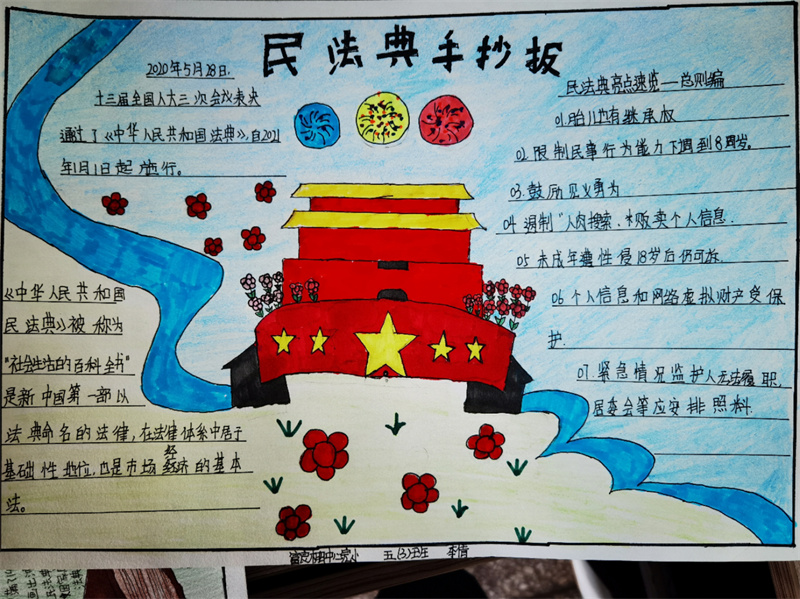 民法典手抄报
2020年5月28日.
十三届全国人大三次会议表决
通过了《中华人民共和国法典》,自2021
年1月1日起施行。
《中华人民共和国
民法典》被称为
"社会生活的百科全书"
是新中国第一部以
法典命名的法律,在法律体系中居于
基础性地位,也是市场经济的基本
法。
民法典亮点速览—总则编
01.胎儿也有继承权
02.限制民事行为能力下调到8周岁。
03.鼓励见义勇为
04.遏制"人肉搜索、贩卖个人信息.
05.未成年遭性侵18岁后仍可诉.
06个人信息和网络虚拟财产受保
护.
07.紧急情况监护人无法履职,
居委会等应安排照料.
中心完小 五.(3)班 李倩